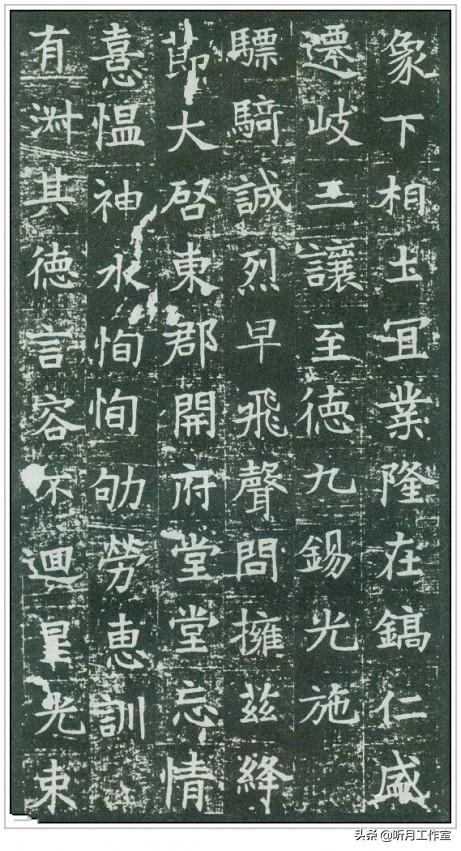 象下相土冝業隆在鎬仁盛
遷岐三讓至徳九錫光施
驃騎誠烈早飛聲問擁茲絳
節大啓東郡開府堂堂忘情
憙愠神水恂恂劬勞恵訓
有淑其徳言容不迴星光東
头条 @听月工作室